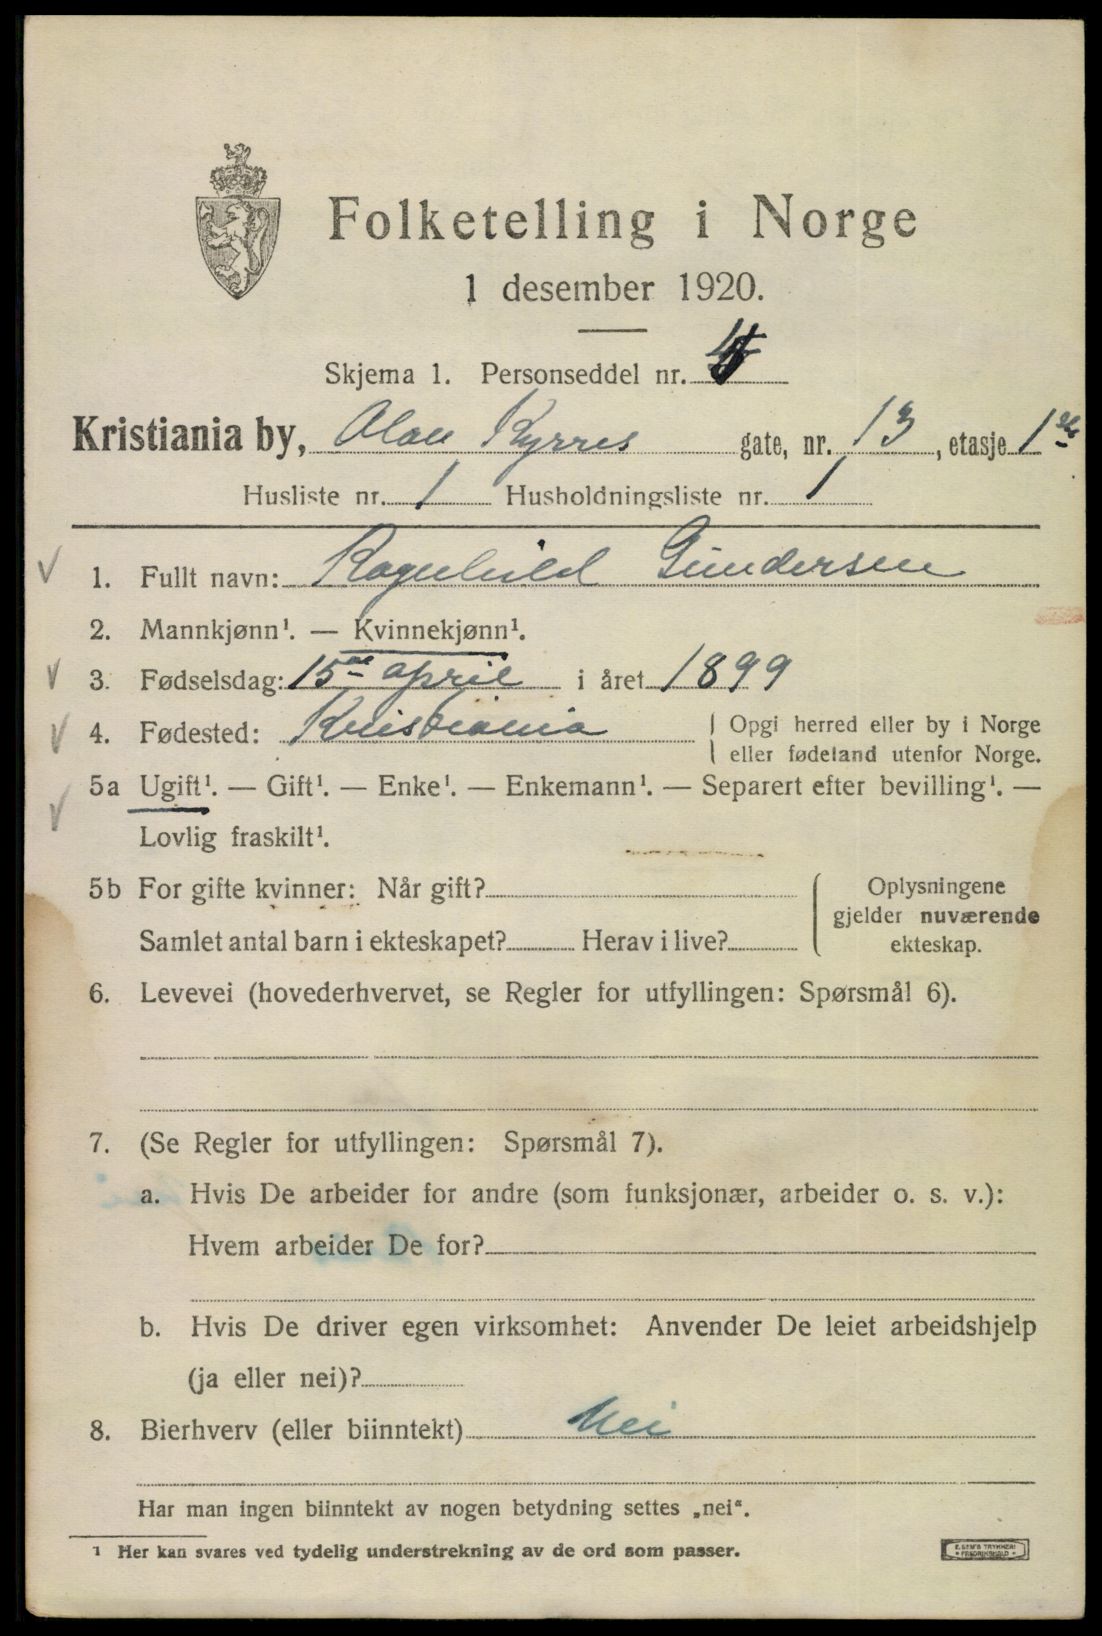 Folketelling i Norge
1 desember 1920.
Skjema 1. Personseddel nr. 4
Kristiania by, Olau Kyrres gate, nr. 13, etasje 1ste
Husliste nr. 1 Husholdningsliste nr. 1
1. Fullt navn: Ragnhild Gundersen
2. Mannkjønn¹. — Kvinnekjønn¹.
3. Fødselsdag: 15de april i året 1899
4. Fødested: Kristiania
Opgi herred eller by i Norge
eller fødeland utenfor Norge.
5a Ugift¹. — Gift¹. — Enke¹. — Enkemann¹. — Separert efter bevilling¹. —
Lovlig fraskilt¹.
5b For gifte kvinner: Når gift?
Samlet antal barn i ekteskapet? Herav i live?
Oplysningene
gjelder nuværende
ekteskap.
6. Levevei (hovederhvervet, se Regler for utfyllingen: Spørsmål 6).
7. (Se Regler for utfyllingen: Spørsmål 7).
a. Hvis De arbeider for andre (som funksjonær, arbeider o. s. v.):
Hvem arbeider De for?
b. Hvis De driver egen virksomhet: Anvender De leiet arbeidshjelp
(ja eller nei)?
8. Bierhverv (eller biinntekt) Nei
Har man ingen biinntekt av nogen betydning settes „nei“.
¹ Her kan svares ved tydelig understrekning av de ord som passer.
E. SEM'S TRYKKERI
FREDRIKSHALD